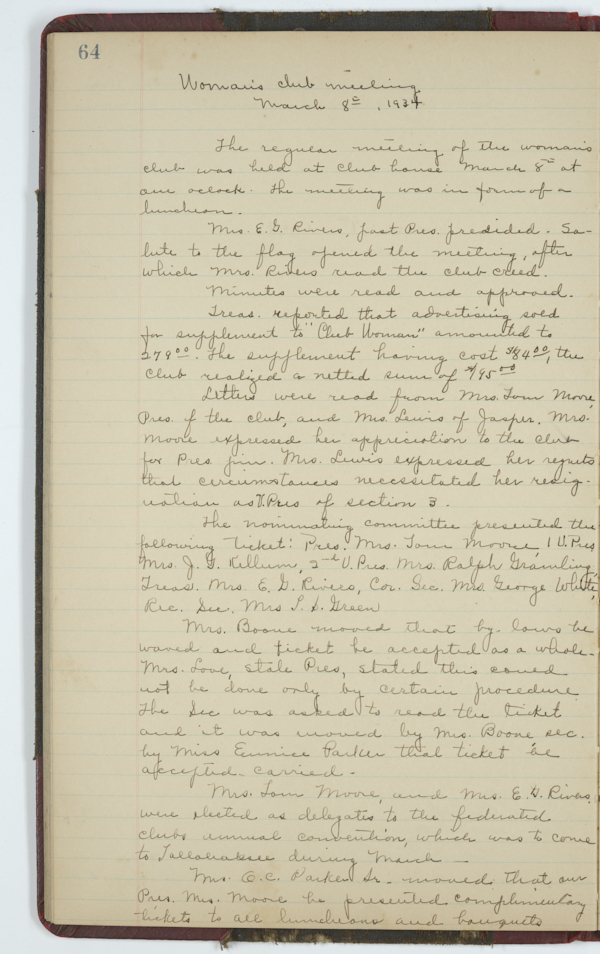 64
Woman's club meeting
March 8th, 1934
The regular meeting of the woman's
club was held at club house March 8th at
one oclock. The meeting was in form of a
luncheon.
Mrs. E. G. Rivers, past Pres. presided. Sa-
lute to the flag opened the meeting, after
which Mrs. Rivers read the club creed.
Minutes were read and approved.
Treas. reported that advertising sold
for supplement to "Club Woman" amounted to
279.00. The supplement having cost $84.00, the
club realized a netted sum of $195.00
Letters were read from Mrs. Tom Moore,
Pres. of the club, and Mrs. Lewis of Jasper. Mrs.
Moore expressed her appreciation to the club
for Pres. pin. Mrs. Lewis expressed her regrets
that circumstances necessitated her resig-
nation as V. Pres of section 3.
The nominating committee presented the
following ticket: Pres. Mrs. Tom Moore, 1 V. Pres
Mrs. J. G. Kellum, 2nd V. Pres. Mrs. Ralph Gramling,
Treas. Mrs. E. G. Rivers, Cor. Sec. Mrs. George White,
Rec. Sec. Mrs Green
Mrs. Boone moved that by-laws be
waved and ticket be accepted as a whole.
Mrs. Love, state Pres, stated this could
not be done only by certain procedure
The Sec was asked to read the ticket
and it was moved by Mrs. Boone sec.
by Miss Eunice Parker that ticket be
accepted. carried.
Mrs. Tom Moore, and Mrs. E. G. Rivers,
were elected as delegates to the federated
clubs annual convention, which was to come
to Tallahassee during March —
Mrs. O. C. Parker Sr. moved that our
Pres. Mrs. Moore be presented complimentary
tickets to all luncheons and banquets